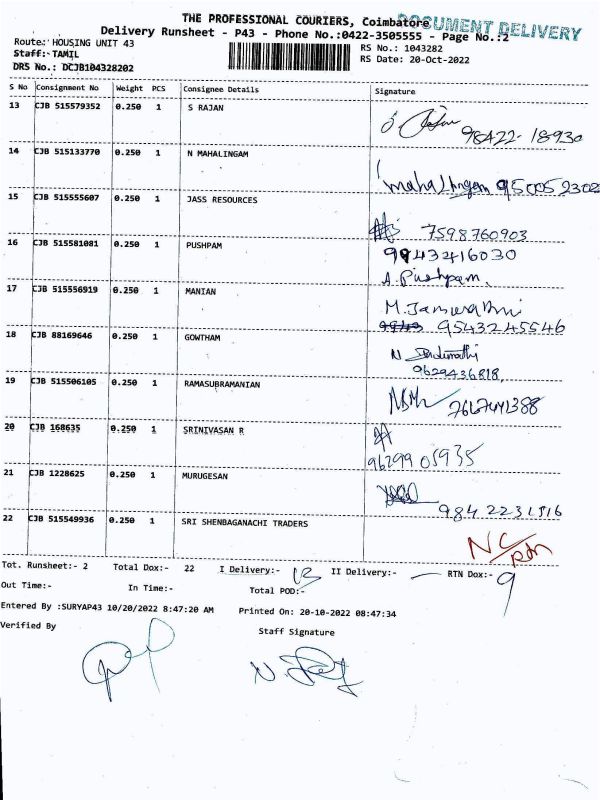 THE PROFESSIONAL COURIERS, Coimbatore
DOCUMENT DELIVERY
Delivery Runsheet - P43 - Phone No.:0422-3505555 - Page No.:2
Route: HOUSING UNIT 43
RS No.: 1043282
Staff:- TAMIL
RS Date: 20-Oct-2022
DRS No.: DCJB104328202
S No Consignment No Weight PCS Consignee Details Signature
13 CJB 515579352 0.250 1 S RAJAN
98422-18930
14 CJB 515133770 0.250 1 N MAHALINGAM
Mahalingam 950052302
15 CJB 515555607 0.250 1 JASS RESOURCES
7598760903
16 CJB 515581081 0.250 1 PUSHPAM
9943216030
A. Pushpam
17 CJB 515556919 0.250 1 MANIAN
9543245546
18 CJB 88169646 0.250 1 GOWTHAM
9629436818
19 CJB 515506105 0.250 1 RAMASUBRAMANIAN
20 CJB 168635 0.250 1 SRINIVASAN R
9629905935
21 CJB 1228625 0.250 1 MURUGESAN
9842231516
22 CJB 515549936 0.250 1 SRI SHENBAGANACHI TRADERS
NC/RTN
Tot. Runsheet:- 2 Total Dox:- 22 I Delivery:- 13 II Delivery:- — RTN Dox:- 9
Out Time:- In Time:- Total POD:-
Entered By :SURYAP43 10/20/2022 8:47:20 AM Printed On: 20-10-2022 08:47:34
Verified By Staff Signature